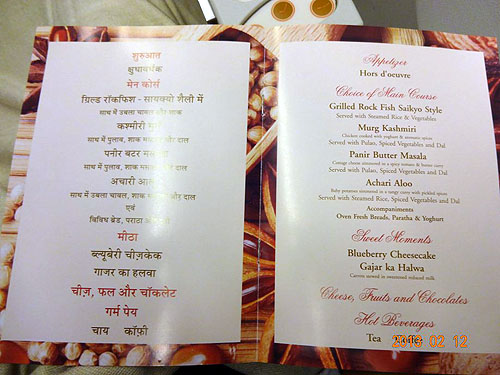 शुरुआत
क्षुधावर्धक
मेन कोर्स
ग्रिल्ड रॉकफिश - सायक्यो शैली में
साथ में उबला चावल, और शाक
कश्मीरी
साथ में पुलाव, शाक और दाल
पनीर बटर
साथ में पुलाव, शाक और दाल
अचारी आलू
साथ में उबला चावल, शाक और दाल
एवं
विविध ब्रेड, पराठा
मीठा
ब्ल्यूबेरी चीज़केक
गाजर का हलवा
चीज़, फल और चॉकलेट
गर्म पेय
चाय कॉफ़ी
Appetizer
Hors d'oeuvre
Choice of Main Course
Grilled Rock Fish Saikyo Style
Served with Steamed Rice & Vegetables
Murg Kashmiri
Chicken cooked with yoghurt & aromatic spices
Served with Pulao, Spiced Vegetables and Dal
Panir Butter Masala
Cottage cheese simmered in a spicy tomato & butter curry
Served with Pulao, Spiced Vegetables and Dal
Achari Aloo
Baby potatoes simmered in a tangy curry with pickled spices
Served with Steamed Rice, Spiced Vegetables and Dal
Accompaniments
Oven Fresh Breads, Paratha & Yoghurt
Sweet Moments
Blueberry Cheesecake
Gajar ka Halwa
Carrots stewed in sweetened reduced milk
Cheese, Fruits and Chocolates
Hot Beverages
Tea Coffee
2010 02 12